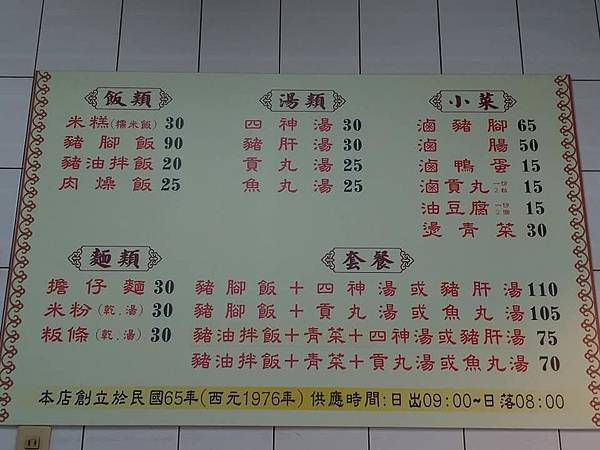 飯類
米糕(糯米飯) 30
豬腳飯 90
豬油拌飯 20
肉燥飯 25
湯類
四神湯 30
豬肝湯 30
貢丸湯 25
魚丸湯 25
小菜
滷豬腳 65
滷腸 50
滷鴨蛋 15
滷貢丸 一份2粒 15
油豆腐 一份2個 15
燙青菜 30
麵類
擔仔麵 30
米粉(乾.湯) 30
粄條(乾.湯) 30
套餐
豬腳飯+四神湯或豬肝湯110
豬腳飯+貢丸湯或魚丸湯105
豬油拌飯+青菜+四神湯或豬肝湯 75
豬油拌飯+青菜+貢丸湯或魚丸湯 70
本店創立於民國65年(西元1976年) 供應時間:日出09:00~日落08:00